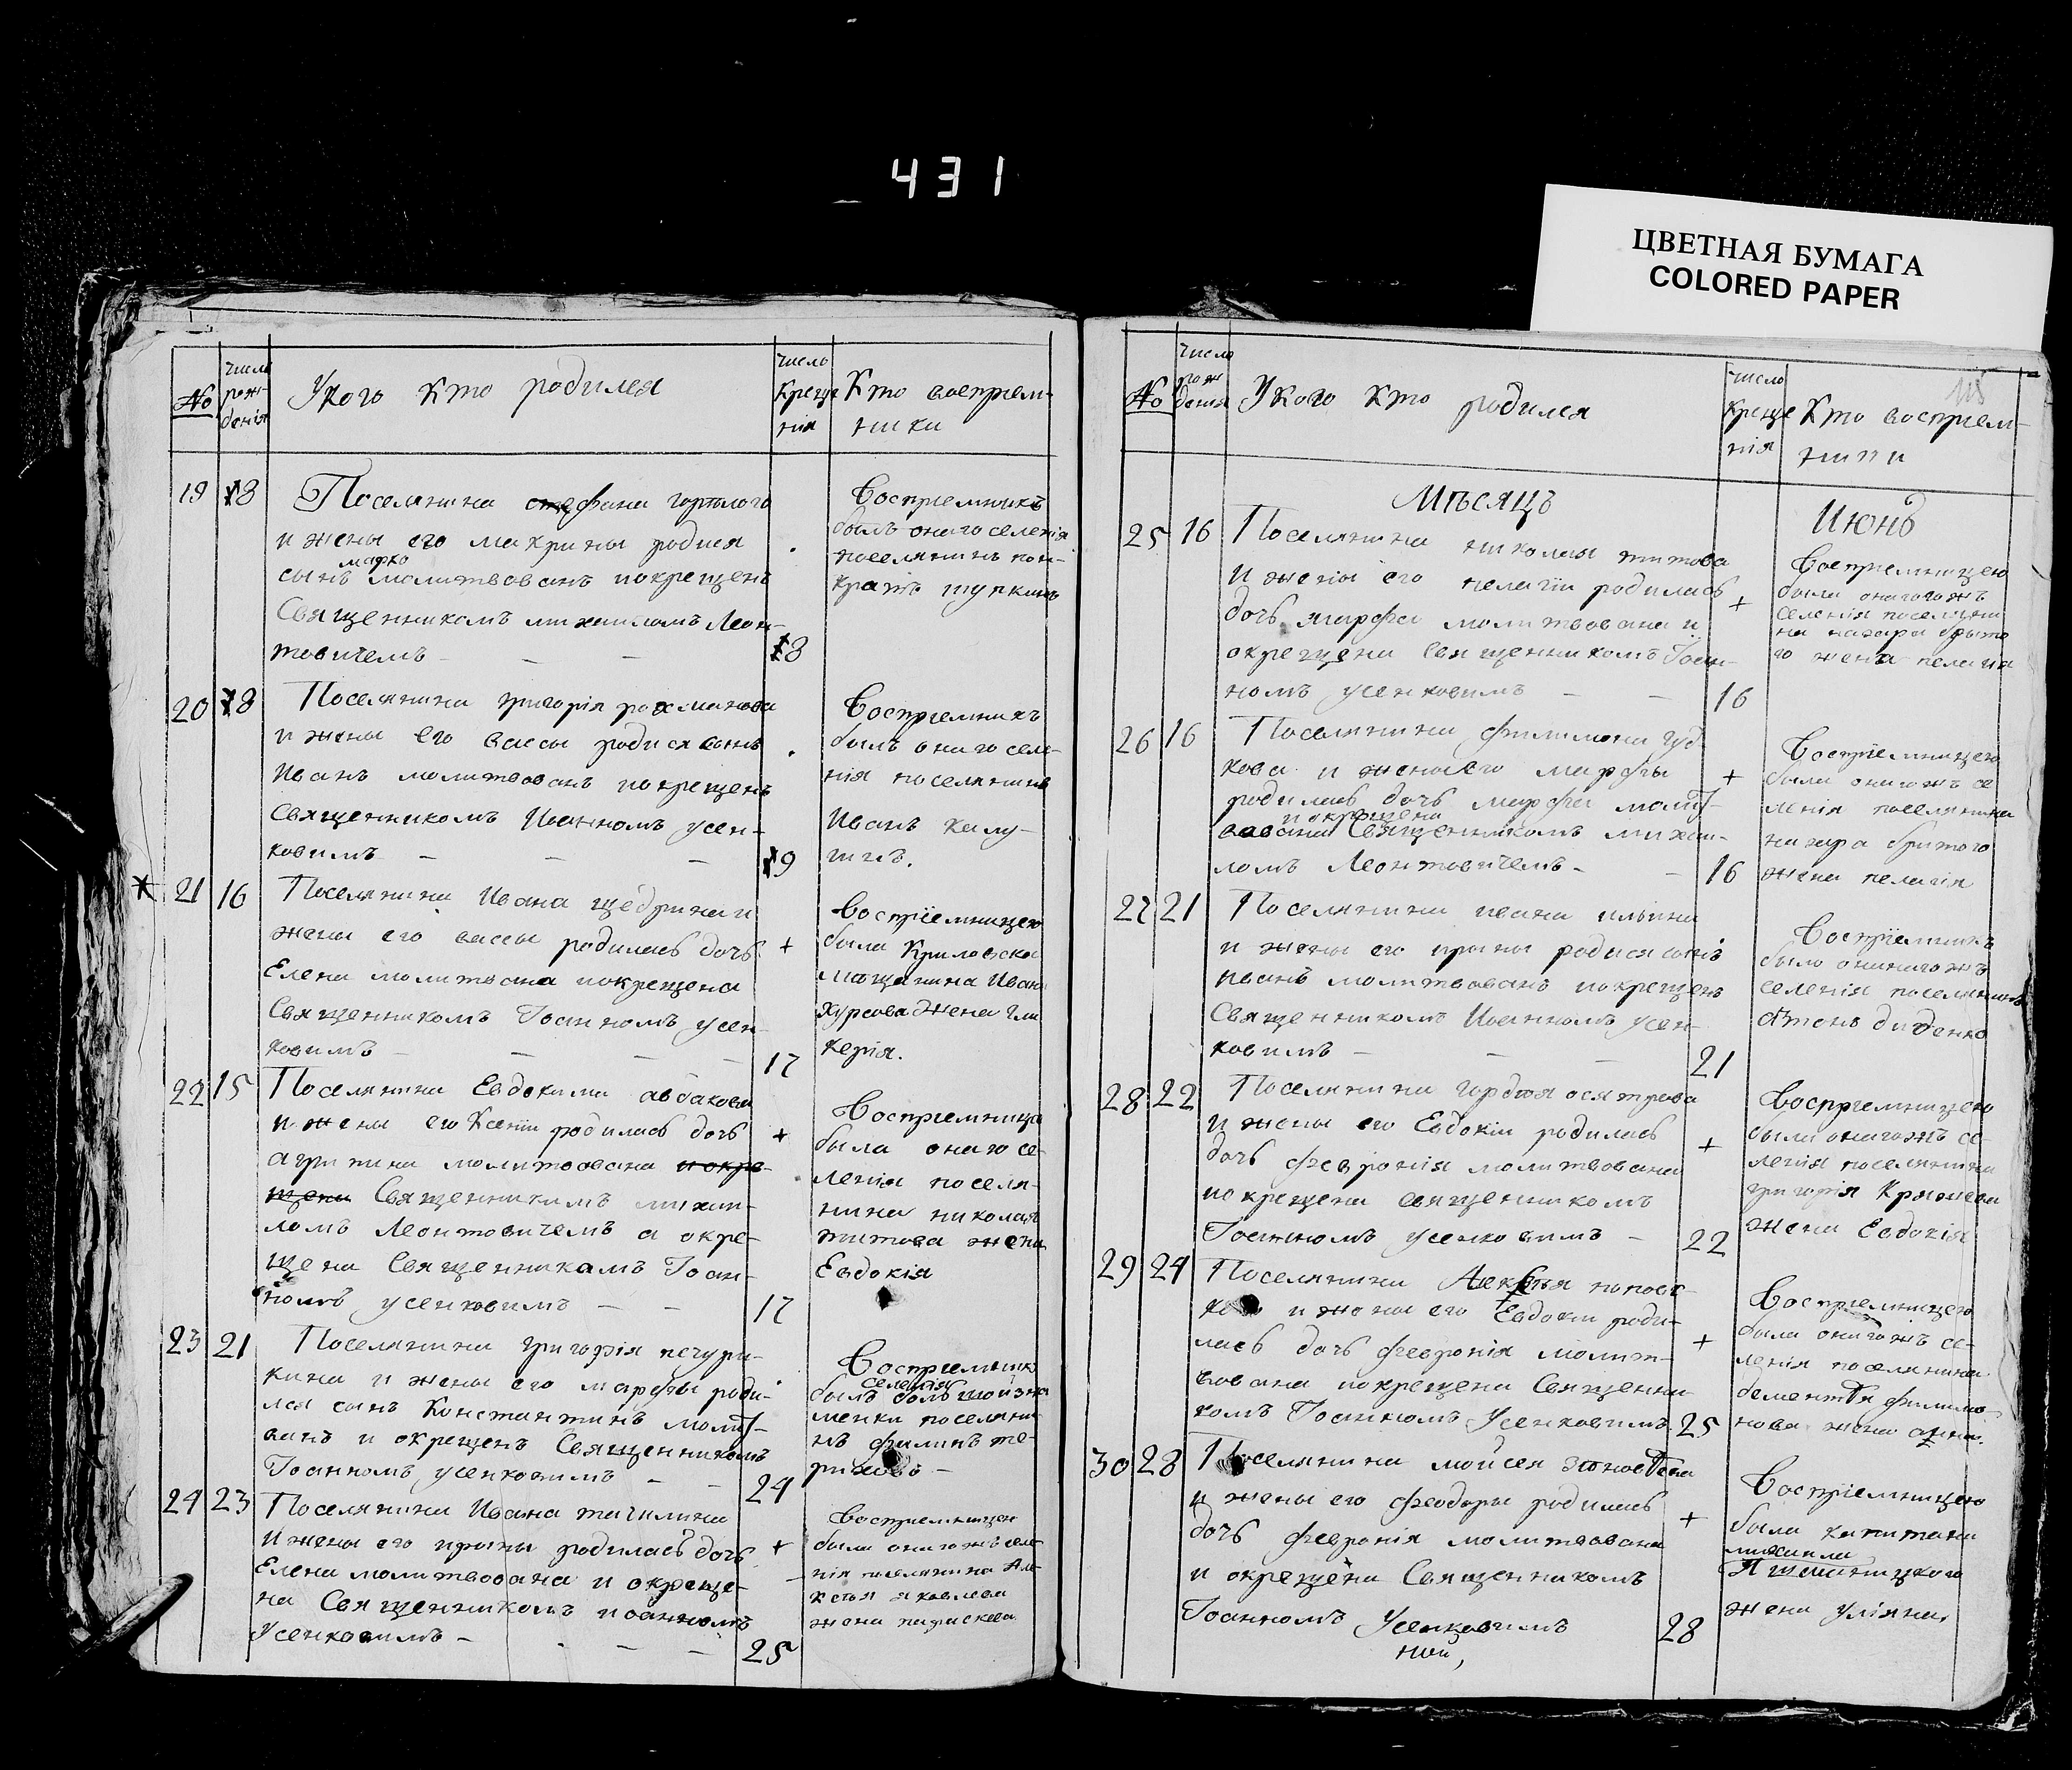 431
ЦВЕТНАЯ БУМАГА
COLORED PAPER
№
число рож-
денія
У кого кто родился
число
креще
нія
Кто восприем-
ники
19 18
Поселянина стефана
и жены его макрины родися
марко
сынъ молитвованъ и окрещенъ
Священникомъ михаиломъ Леон-
товичемъ — — —
18
Восприемникъ
былъ онаго селенія
поселянинъ пан-
кратъ
20 18
Поселянина григорія рахманова
и жены его вассы родися сынъ
Иванъ молитвованъ и окрещенъ
Священникомъ Иоанномъ усен-
ковимъ — — —
19
Восприемникъ
былъ онаго селе-
нія поселянинъ
Иванъ калу-
гинъ.
21 16
Поселянина Ивана щедрина и
жены его вассы родилась дочь
Елена молитвована и окрещена
Священникомъ Іоанномъ усен-
ковимъ — — — —
17
+
Восприемницею
была Криловска
мещанина Ивана
жена гли
керія.
22 15
Поселянина Евдокима авдакова
и жены его Ксеніи родилась дочь
агрипина молитвована и окре-
щена Священникимъ михаи-
ломъ Леонтовичемъ а окре-
щена Священникамъ Іоан-
номъ усенковимъ — —
17
+
Восприемница
была онаго се-
ленія поселя-
нина николая
титова жена
Евдокія
23 21
Поселянина григорія печури-
кина и жены его марфы роди-
лся сынъ Константинъ молит-
ванъ и окрещенъ Священникомъ
Іоанномъ усенковимъ — —
24
Восприемник
селенія
былъ
менки поселяни-
нъ филипъ те-
риховъ —
24 23
Поселянина Ивана тачилина
И жены его ирины родилась дочь
Елена молитвована и окреще-
на Священникомъ иоанномъ
Усенковимъ — — —
25
+
Восприемницею
была онагожъ селе-
нія поселянина Але-
ксея яковлева
жена параскева
115
№
число
рож
денія
У кого кто родился
число
креще
нія
Кто восприем-
ники
Мѣсяцъ Июнь
25 16
Поселянина николая титова
И жены его пелагіи родилась
дочь марфа молитвована и
окрещена Священникомъ Іоан-
номъ усенковимъ — —
16
+
Восприемницею
была онагожъ
селенія поселяни
на назара брыто
го жена пелагия
26 16
Поселянина филимона гуд
кова и жены его марфы
родилась дочь марфа молит-
и окрещена
вована Священникомъ михаи-
ломъ Леонтовичемъ- —
16
+
Восприемницею
была онагожъ се
ленія поселянина
назара бритого
жена пелагія
27 21
Поселянина ивана ильина
и жены его ирины родися сынъ
иванъ молитвованъ и окрещенъ
Священникомъ Иоанномъ усен-
ковимъ — — —
21
Восприемникъ
было онагожъ
селенія поселянинъ
антонъ диденко
28 22
Поселянина гордея осятрова
И жены его Евдокіи родилась
дочь февронія молитвована
и окрещена священникомъ
Іоанномъ усенковимъ —
22
+
Восприемницею
была онагожъ се-
ленія поселянина
григорія Крянева
жена Евдокія
29 24
Поселянина Алексея поповс-
кого и жены его Евдокии роди-
лась дочь февронія молит-
вована и окрещена Священни-
комъ Іоанномъ Усенковимъ
25
+
Восприемницею
была онагожъ се-
ленія поселянина
дементея филимо-
нова жена анна.
30 28
Поселянина мойсея
и жены его феодоры родилась
дочь февронія молитвована
и окрещена Священникомъ
Іоанномъ Усенковимъ
28
+
Восприемницею
была капитана
михаила
жена уліяна,